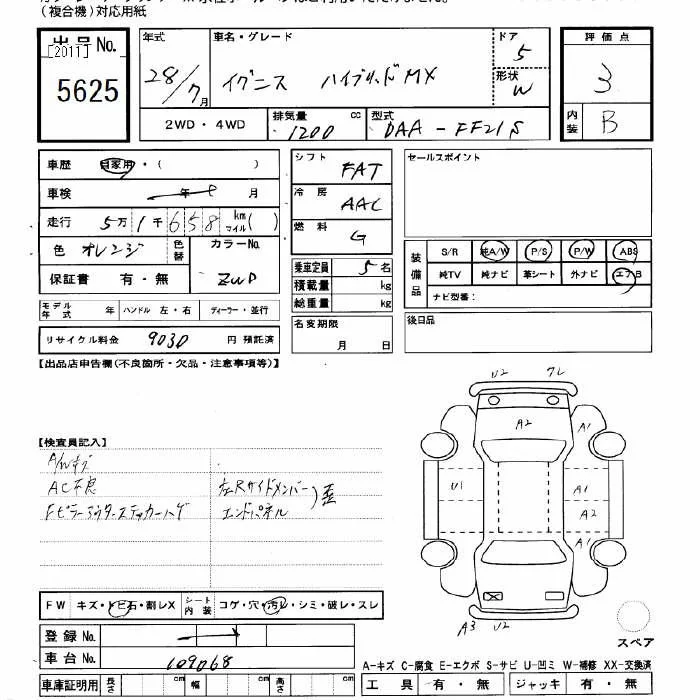 (複合機)対応用紙
出品 No. [2011] 5625
年式 28/7月
車名・グレード イグニス ハイブリッドMX
ドア 5
形状 W
評価点 3
内装 B
2WD・4WD
排気量 1200 cc
型式 DAA-FF21S
車歴 自家用・( )
シフト FAT
セールスポイント
車検 年 月
冷房 AAC
走行 5万1千658 km マイル( )
燃料 G
色 オレンジ 色替
カラーNo. ZWD
装備品 S/R 純A/W P/S P/W ABS
保証書 有・無
乗車定員 5名
純TV 純ナビ 革シート 外ナビ エアB
積載量 kg
ナビ型番:
総重量 kg
モデル年式 年 ハンドル 左・右 ディーラー・並行
名変期限 月 日
後日品
リサイクル料金 9030 円 預託済
【出品店申告欄(不良箇所・欠品・注意事項等)】
U2 フレ
A2 A1
【検査員記入】
A/Wキズ
AC不良 左Rサイドメンバー
Fピラーアウターステッカーハゲ エンドパネル )歪
U1 A1
A2
A1
FW キズ・トビ石・割レX
シート内装 コゲ・穴・汚レ・シミ・破レ・スレ
登録 No.
A3 U2
スペア
車台 No. 109068
A-キズ C-腐食 E-エクボ S-サビ U-凹ミ W-補修 XX-交換済
車庫証明用 長さ cm 幅 cm 高さ cm
工具 有・無 ジャッキ 有・無